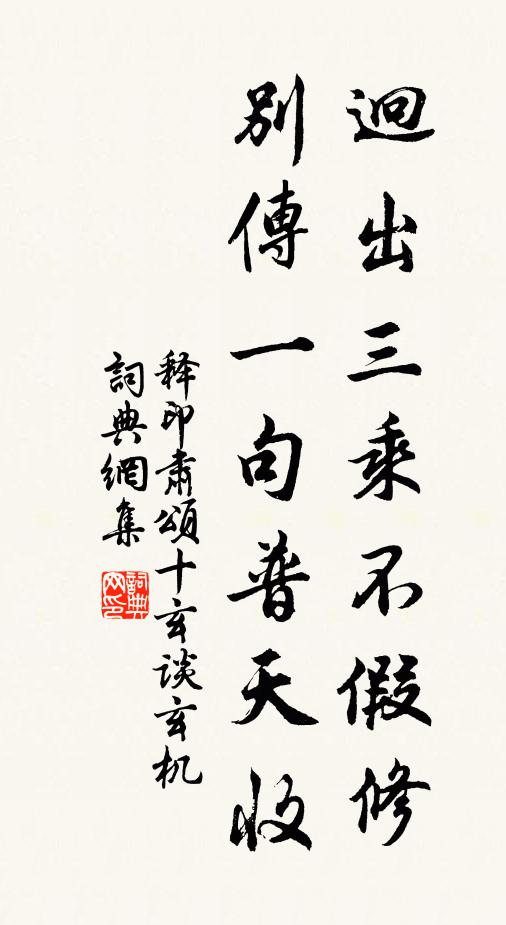 迥出三乘不假修
別傳一句普天收
释印肅頌十玄谈玄机
詞典網集
詞典网印